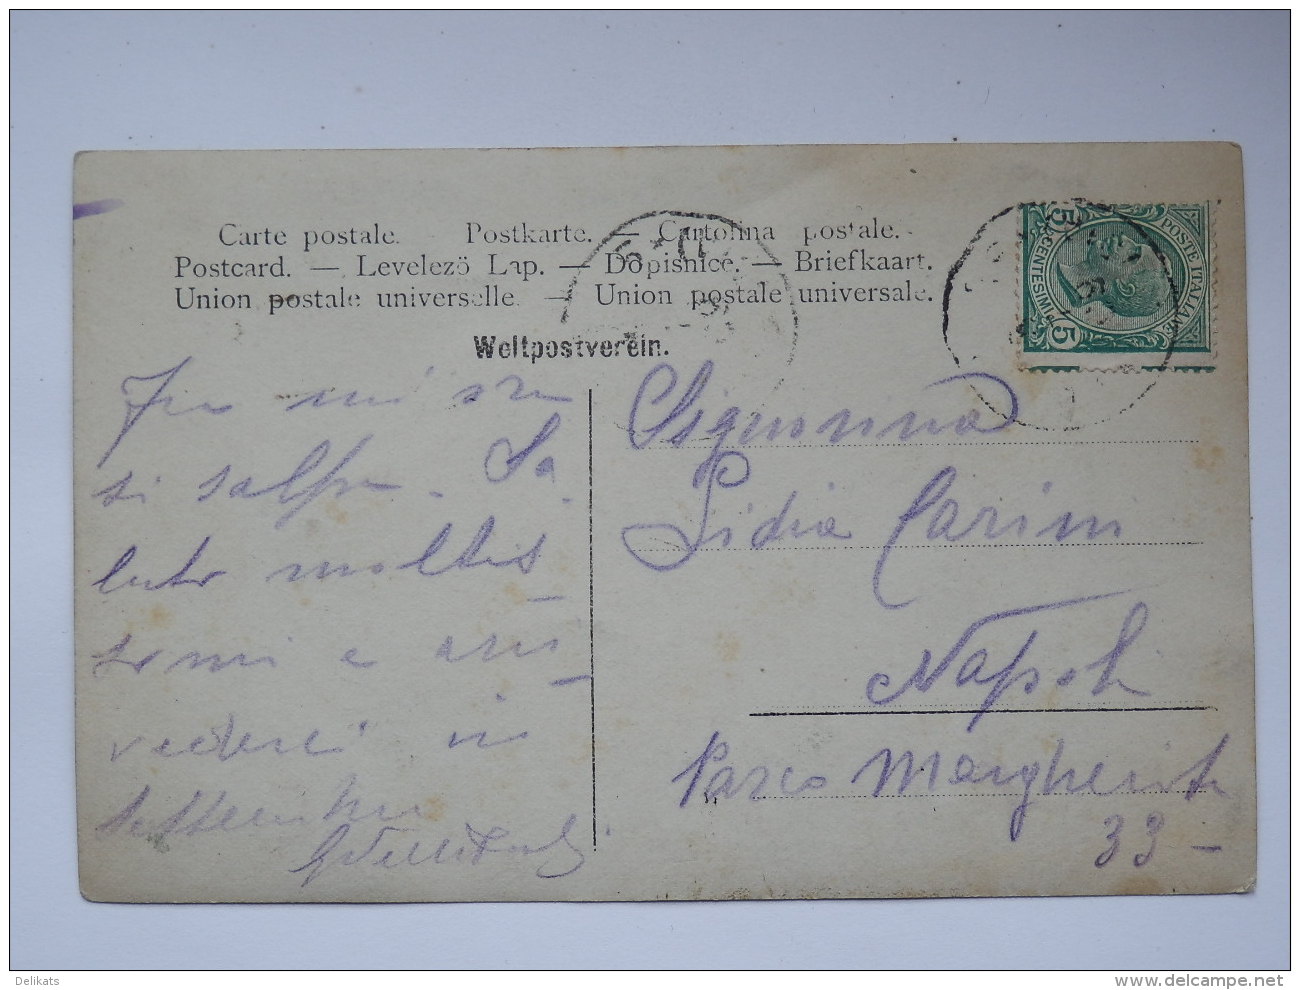 Carte postale. Postkarte. — Cartolina postale.
Postcard. — Levelezö Lap. — Dopisnice. — Briefkaart.
Union postale universelle. — Union postale universale.
Weltpostverein.
POSTE ITALIANE
CENTESIMI
5
5
si salpa. Sa
luto moltis
simi e arri
vederci in
settembre
Signorina
Lidia Carini
Napoli
Parco Margherita
33 —
Delikats
www.delcampe.net